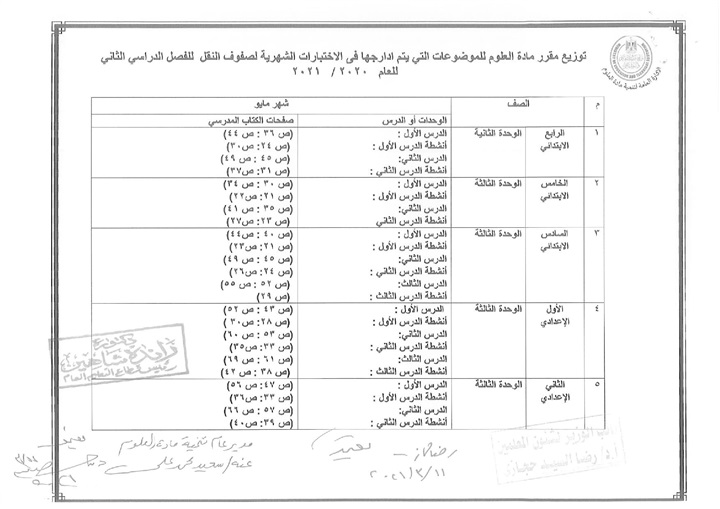 توزيع مقرر مادة العلوم للموضوعات التي يتم ادارجها فى الاختبارات الشهرية لصفوف النقل للفصل الدراسي الثاني
للعام ٢٠٢٠ / ٢٠٢١
الإدارة العامة لتنمية مادة العلوم
م الصف شهر مايو
الوحدات أو الدرس صفحات الكتاب المدرسي
١ الرابع الابتدائي الوحدة الثانية الدرس الأول : (ص ٣٦ : ص ٤٤)
أنشطة الدرس الأول : (ص ٢٤: ص٣٠)
الدرس الثاني: (ص ٤٥ : ص ٤٩)
أنشطة الدرس الثاني : (ص ٣١: ص٣٧)
٢ الخامس الابتدائي الوحدة الثالثة الدرس الأول : (ص ٣٠ : ص ٣٤)
أنشطة الدرس الأول : (ص ٢١: ص٢٢)
الدرس الثاني: (ص ٣٥ : ص ٤١)
أنشطة الدرس الثاني (ص ٢٣: ص٢٧)
٣ السادس الابتدائي الوحدة الثالثة الدرس الأول : (ص ٤٠ : ص٤٤)
أنشطة الدرس الأول : (ص ٢١: ص٢٣)
الدرس الثاني: (ص ٤٥ : ص ٤٩)
أنشطة الدرس الثاني : (ص ٢٤: ص٢٦)
الدرس الثالث: (ص ٥٢ : ص ٥٥)
أنشطة الدرس الثالث : (ص ٢٩)
٤ الأول الإعدادي الوحدة الثالثة الدرس الأول : (ص ٤٣ : ص ٥٢)
أنشطة الدرس الأول : (ص ٢٨: ص٣٠)
الدرس الثاني: (ص ٥٣ : ص ٦٠)
أنشطة الدرس الثاني : (ص ٣٣: ص٣٥)
الدرس الثالث: (ص ٦١ : ص ٦٩)
أنشطة الدرس الثالث : (ص ٣٨ : ص ٤٢)
٥ الثاني الإعدادي الوحدة الثالثة الدرس الأول : (ص ٤٧: ص ٥٦)
أنشطة الدرس الأول : (ص ٣٣: ص٣٦)
الدرس الثاني: (ص ٥٧ : ص ٦٦)
أنشطة الدرس الثاني : (ص ٣٩: ص٤٠)
دكتورة
راندة شاهين
رئيس قطاع التعليم العام
نائب الوزير لشئون المعلمين
أ.د/ رضا السيد حجازى
مدير عام تنمية مادة العلوم
عنه/ سعيد محمد على
٢٠٢١/٣/١١